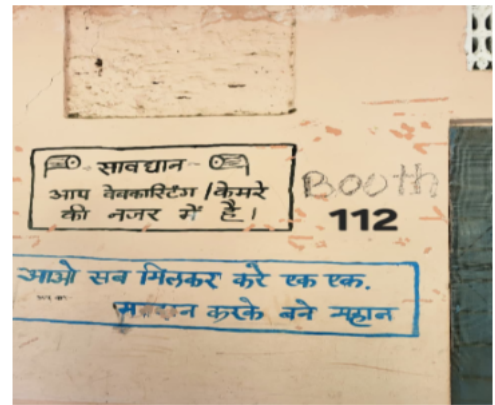 सावधान
आप वेबकास्टिंग / केमरे
की नजर में है।
Booth
112
आओ सब मिलकर करे एक एक.
करके बने महान